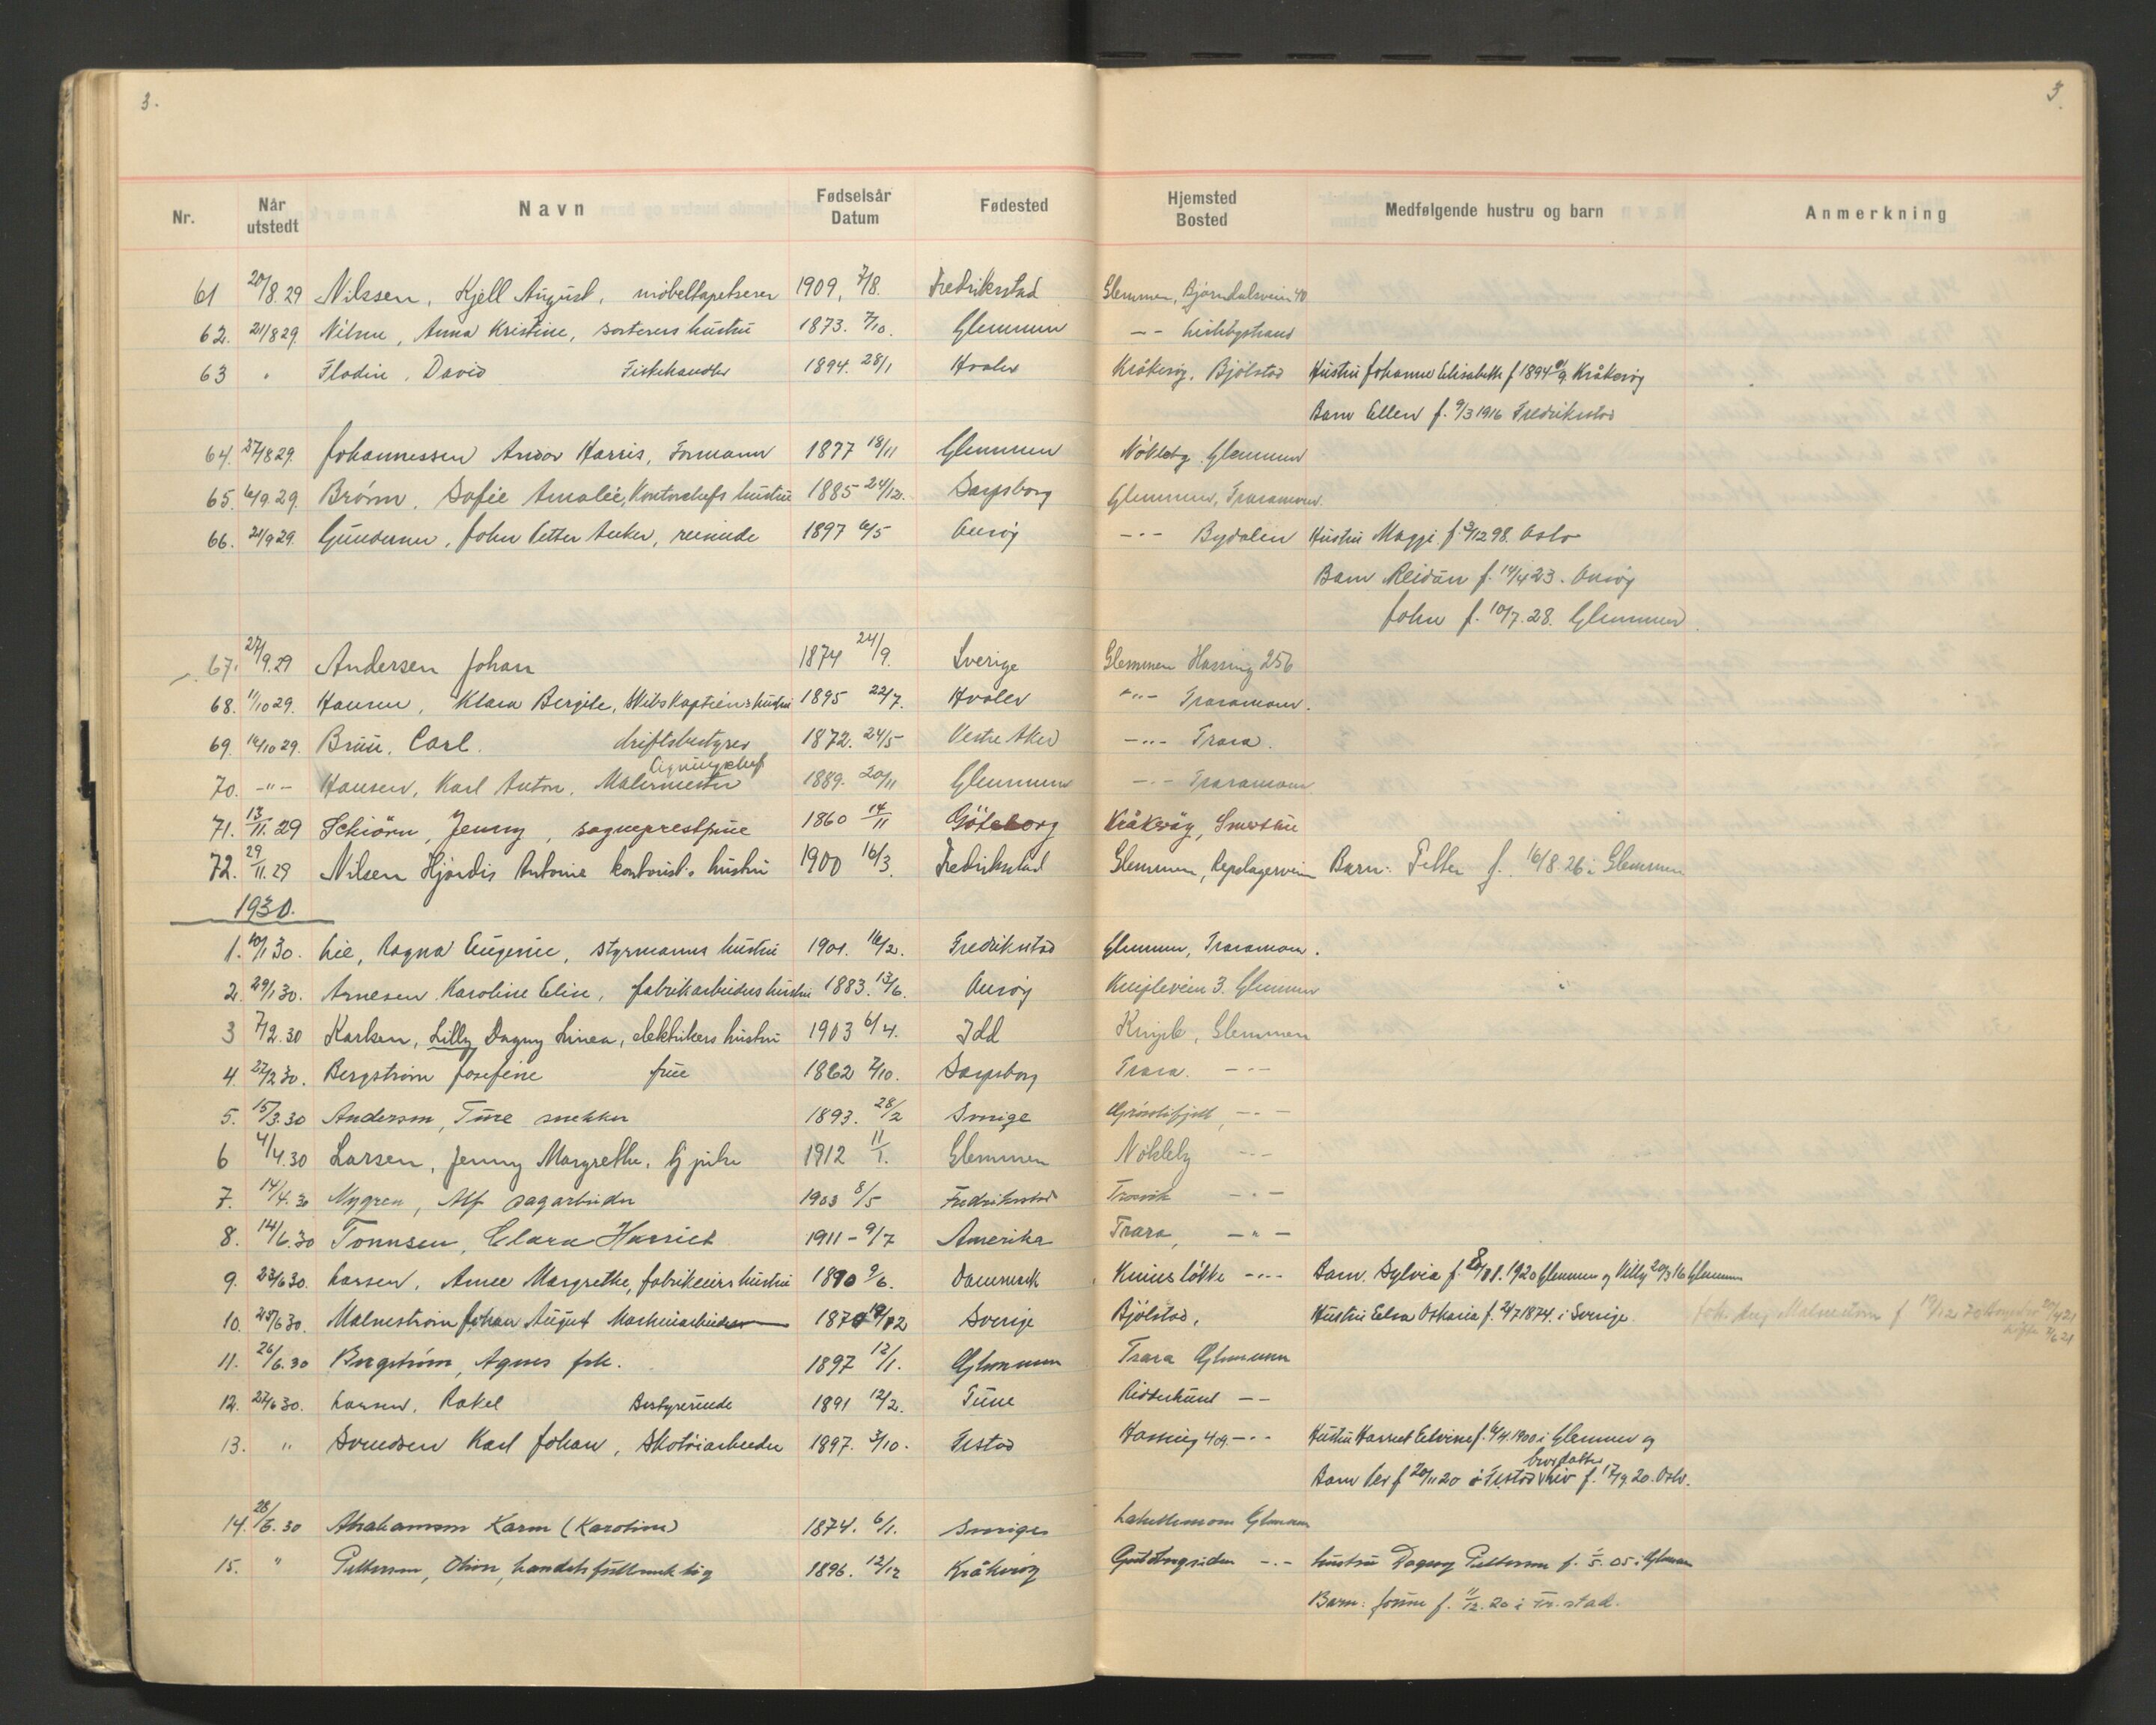 3. 3.
Nr. Når utstedt Navn Fødselsår Datum Fødested Hjemsted Bosted Medfølgende hustru og barn Anmerkning
61 20/8.29 Nilssen, Kjell August, møbeltapetserer 1909, 7/8. Fredrikstad Glemmen, Bjørndalsveien 40
62. 21/8 29. Nilsen, Anna Kristine, sorterers hustru 1873. 7/10. Glemmen -"- Lislebystrand
63 " Flodin, David Fiskehandler 1894. 28/1 Hvaler Kråkerøy, Bjölstad Hustru Johanne Elisabeth f 1894 /9. Kråkerøy
Barn Ellen f. 9/3 1916 Fredrikstad
64. 27/8 29. Johannessen Andor Harris, Formann 1877 18/11 Glemmen Nökleby Glemmen
65. 6/9.29. Brörm, Sofie Amalie, Kontorchefs hustru 1885 24/12. Sarpsborg Glemmen, Traramoen
66. 21/9 29. Gundersen, John Petter Anker, reisende 1897 6/5 Onsöy -"- Bydalen Hustru Maggi f. 3/12 98. Oslo
Barn Reidun f. 14/4 23. Onsöy
John f. 10/7.28. Glemmen.
67. 27/9.29 Andersen Johan 1874 24/9. Sverige Glemmen Hassing 256
68. 1/10 29. Hansen, Klara Bergite, Skibskapteins hustru 1895 22/7. Hvaler -"- Traramoen.
69. 16/10 29. Bruu, Carl. driftsbestyrer 1872. 24/5 Vestre Aker -"- Trara.
70. -"- Hansen, Karl Anton, Malermester 1889. 20/11 Glemmen -"- Traramoen
71. 13/11.29 Schiörn, Jenny, sogneprestfrue 1860 14/11 Göteborg Kråkeröy, Smertu
72. 29/11.29 Nilsen Hjördis Antonie kontorist's hustru 1900 16/3. Fredrikstad Glemmen, Repslagerveien Barn: Petter f. 16/8.26 i Glemmen
1930.
1. 10/1 30. Lie, Ragna Eugenie, styrmanns hustru 1901. 16/2. Fredrikstad Glemmen, Traramoen.
2. 29/1 30. Arnesen Karoline Elise, fabrikarbeiders hustru 1883. 13/6. Onsöy Knipleveien 3. Glemmen
3 7/2.30 Karlsen, Lilly Dagny Linea, elektrikers hustru 1903 6/4. Idd Kniple, Glemmen
4. 27/2 30. Bergström Josefine frue 1862 7/10. Sarpsborg Trara. -"-
5. 15/3.30 Anderson, Ture snekker 1893. 28/2 Sverige -"-
6 4/4.30 Larsen, Jenny Margrethe, tj.pike 1912 11/1. Glemmen Nökleby -"-
7. 14/4.30 Nygren, Alf sagarbeider 1903 8/5 Fredrikstad Trosvik -"-
8. 14/6.30 Tonnsen, Clara Harriet 1911 - 9/7 Amerika Trara, -"-
9. 23/6 30. Larsen, Anne Margrethe, fabrikeiers hustru 1890 9/6. Danmark Knivsløkke -"- Barn. Sylvia f. 1920 Glemmen og Villy 20/3 16 Glemmen
10. 25/6 30. Malmeström Johan August Maskinarbeider 1870 19/12 Sverige Bjölstad, Hustru Edva Oskaria f. 2/7 1874. i Sverige. Joh. Aug Malmeström f 19/12 70
11. 26/6.30 Bergström, Agnes frk. 1897 12/1. Glemmen Trara Glemmen
12. 27/6 30. Larsen, Rakel Bestyrerinde 1891 12/2. Tune Ridderlund -"-
13. " Svendsen Karl Johan, Skotöiarbeider 1897. 3/10. Fr.stad Hassing 409. -"- Hustru Harriet Edvine f. 6/4. 1900 i Glemmen og
Barn Per f 20/11 20 i Fr.stad Liv f. 17/9. 20. Oslo.
14. 28/6.30 Abrahamson Karin (Karolina) 1874. 6/1. Sverige Glemmen
15. " Pettersen, Olivin, handelsfullmektig 1896. 12/12 Kråkeröy -"- hustru Dagny Pettersen f. 1/5 05 i Glemmen
Barn: f. 11/12. 20 i Fr.stad.